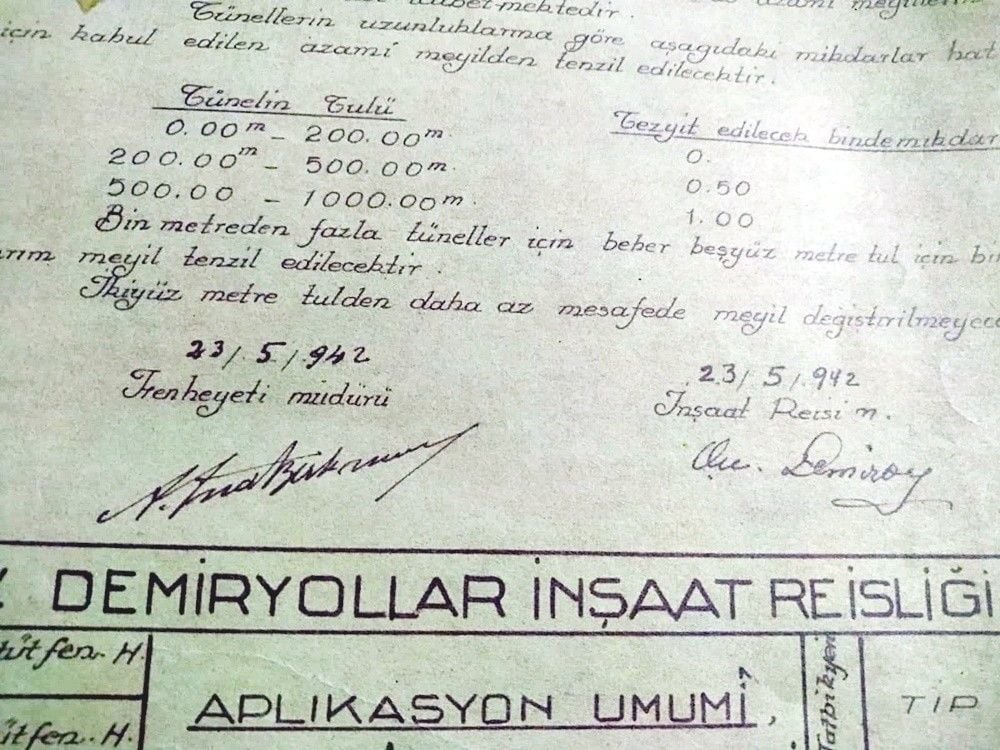 Tünellerin uzunluklarına göre aşagıdaki mikdarlar hat
için kabul edilen azami meyilden tenzil edilecektir.
Tünelin Tulü
Tezyit edilecek binde mikdar
0.00 m - 200.00 m. 0.
200.00 m - 500.00 m. 0.50
500.00 - 1000.00 m. 1.00
Bin metreden fazla tüneller için beher beşyüz metre tul için bi
arım meyil tenzil edilecektir.
İkiyüz metre tulden daha az mesafede meyil degıştirilmeyece
23/5/942
23/5/942
Fenheyeti müdürü
İnşaat Reisi n.
Demiroy
DEMİRYOLLAR İNŞAAT REİSLİĞİ
fen. H.
APLIKASYON UMUMİ,
Tatbikyeri
TİP
fen. H.